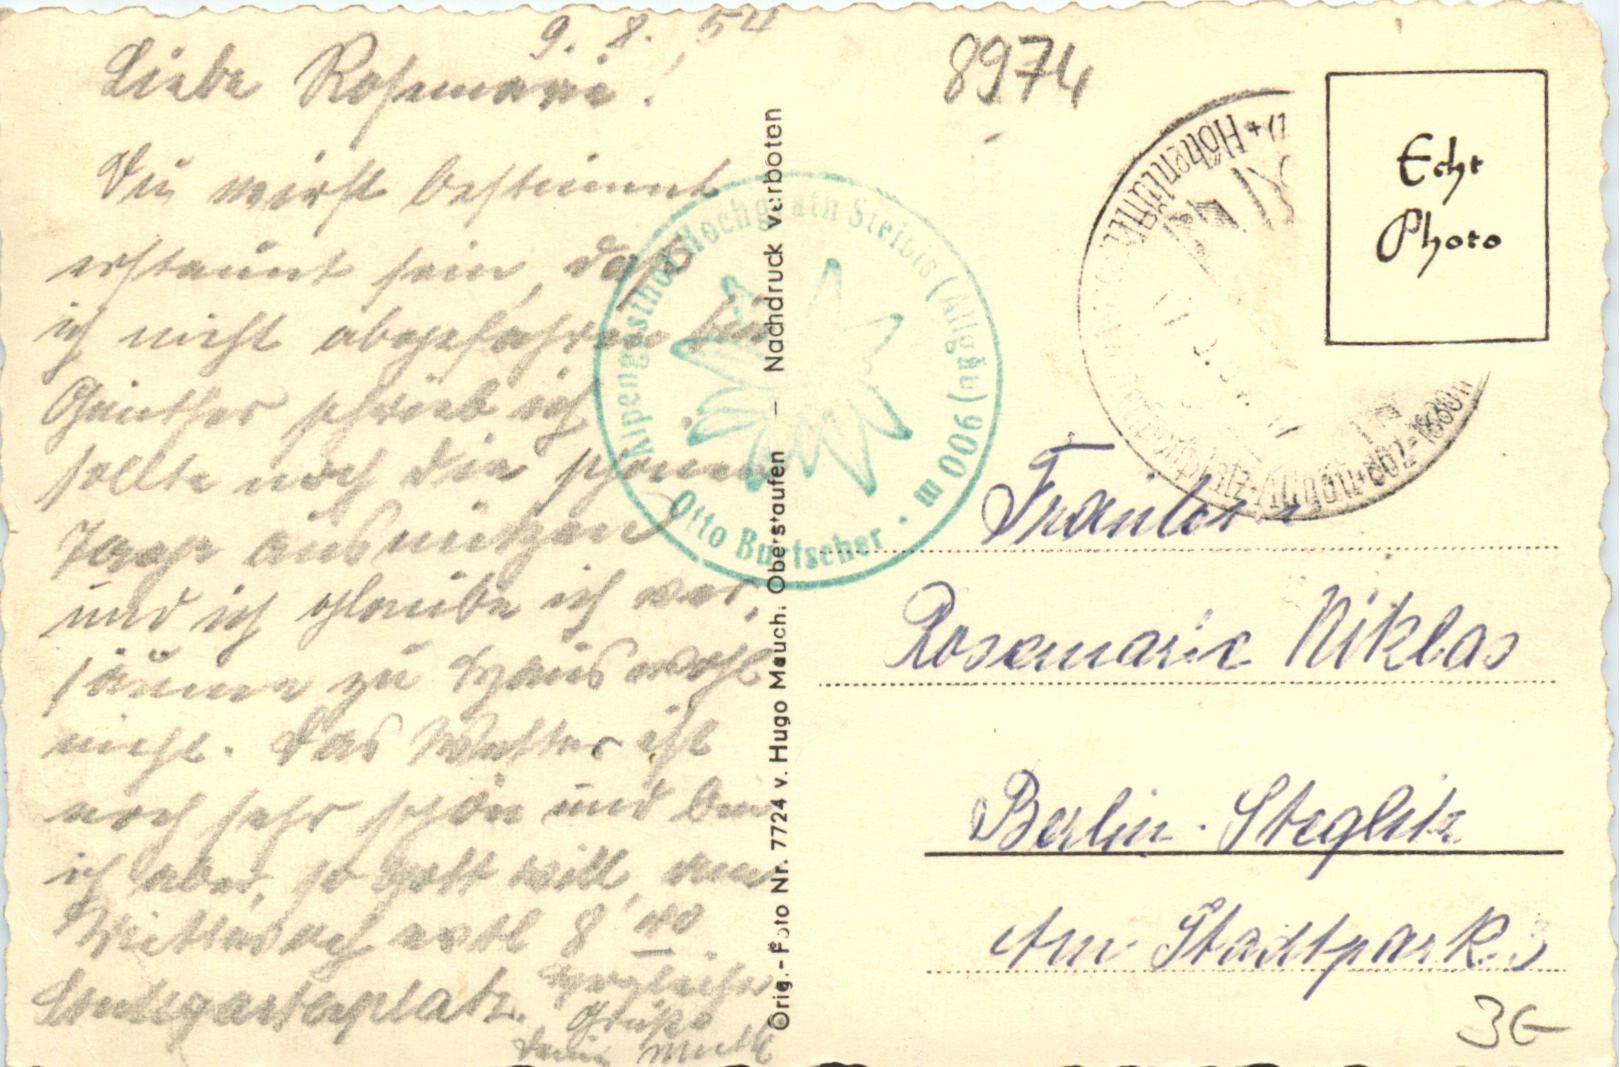 9. 8. 54
Liebe Rosemarie!
Du wirst bestimmt
erstaunt sein, daß
ich nicht abgefahren bin
Günther schrieb ich
sollte noch die schönen
Tage ausnützen
und ich glaube ich ver-
säume zu Haus wohl
nicht. Das Wetter ist
noch sehr schön und bin
ich aber, so Gott will, am
Mittwoch 8 00
Stuttgarterplatz.
Herzliche
Grüße
Deine Mutti
Orig.-Foto Nr. 7724 v. Hugo Mauch, Oberstaufen — Nachdruck verboten
Alpengasthof Hochgrath Steibis (Allgäu) 900 m
Otto Burtscher
8974
Höhenluftkur
Echt
Photo
Fräulein
Rosemarie Niklas
Berlin-Steglitz
Am Stadtpark 3
3€